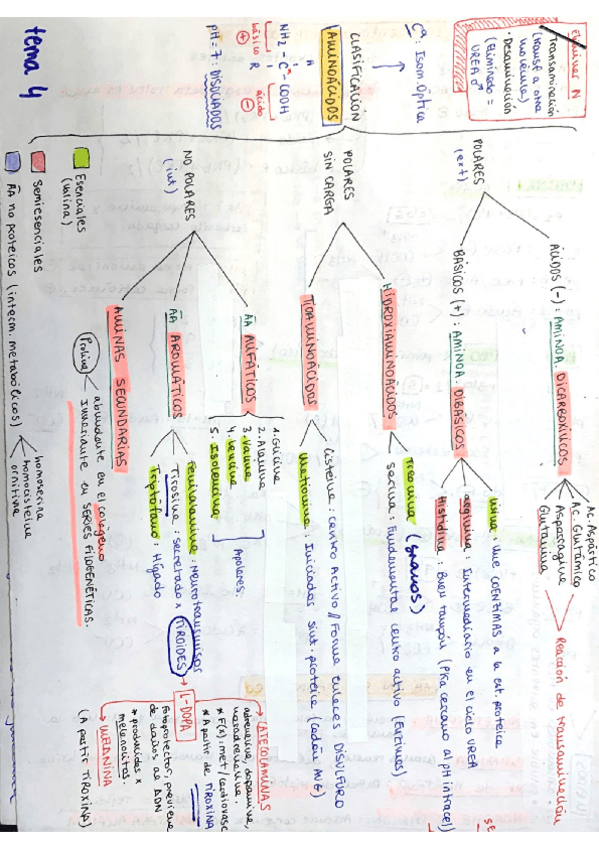 tema 4
eliminar N
Transaminación
(transf a otra
molécula)
· Desaminación
(Eliminado =
UREA
Cα: Isom. Óptica
CLASIFICACIÓN
AMINOÁCIDOS
H
NH2 - Cα - COOH
básico R ácido
⊕ ⊖
pH = 7 : DISOCIADOS
POLARES
(ext)
ÁCIDOS (-) : AMINOA. DICARBOXÍLICOS
Ac. Aspártico
Ac. Glutámico
Asparragina
Glutamina
Reacción de transaminación
BÁSICOS (+) : AMINOA. DIBÁSICOS
Lisina : Une COENZIMAS a la est. proteica
Arginina : Intermediario en el ciclo UREA
Histidina : Buen tampón (PKa cercano al pH intracel)
POLARES
SIN CARGA
HIDROXIAMINOÁCIDOS
Treonina
Serina : Fundamental centro activo (Enzimas)
TIOAMINOÁCIDOS
Cisteína : centro Activo / Forma enlaces DISULFURO
Metionina : Iniciados sint. proteica (codón AUG)
NO POLARES
(int)
ĀA ALIFÁTICOS
1. Glicina
2. Alanina
3. Valina
4. Leucina
5. Isoleucina
Apolares.
ĀA AROMÁTICOS
Fenilalanina : Neurotransmisor
Tirosina : secretado x TIROIDES
Triptófano : Hígado
L-DOPA
CATECOLAMINAS
adrenalina, dopamina,
noradrenalina.
* F(x): met / cardiovasc
* A partir de TIROXINA
fotoprotector, previene
de daños al ADN
* producidos x
melanocitos.
MELANINA
(A partir TIROXINA)
AMINAS SECUNDARIAS
Prolina
abundante en el colágeno
Invariante en SERIES FILOGENÉTICAS.
Esenciales
(valina)
Semiesenciales
ĀA no proteicos (interm. metabólicos)
homoserina
homocisteína
ornitina